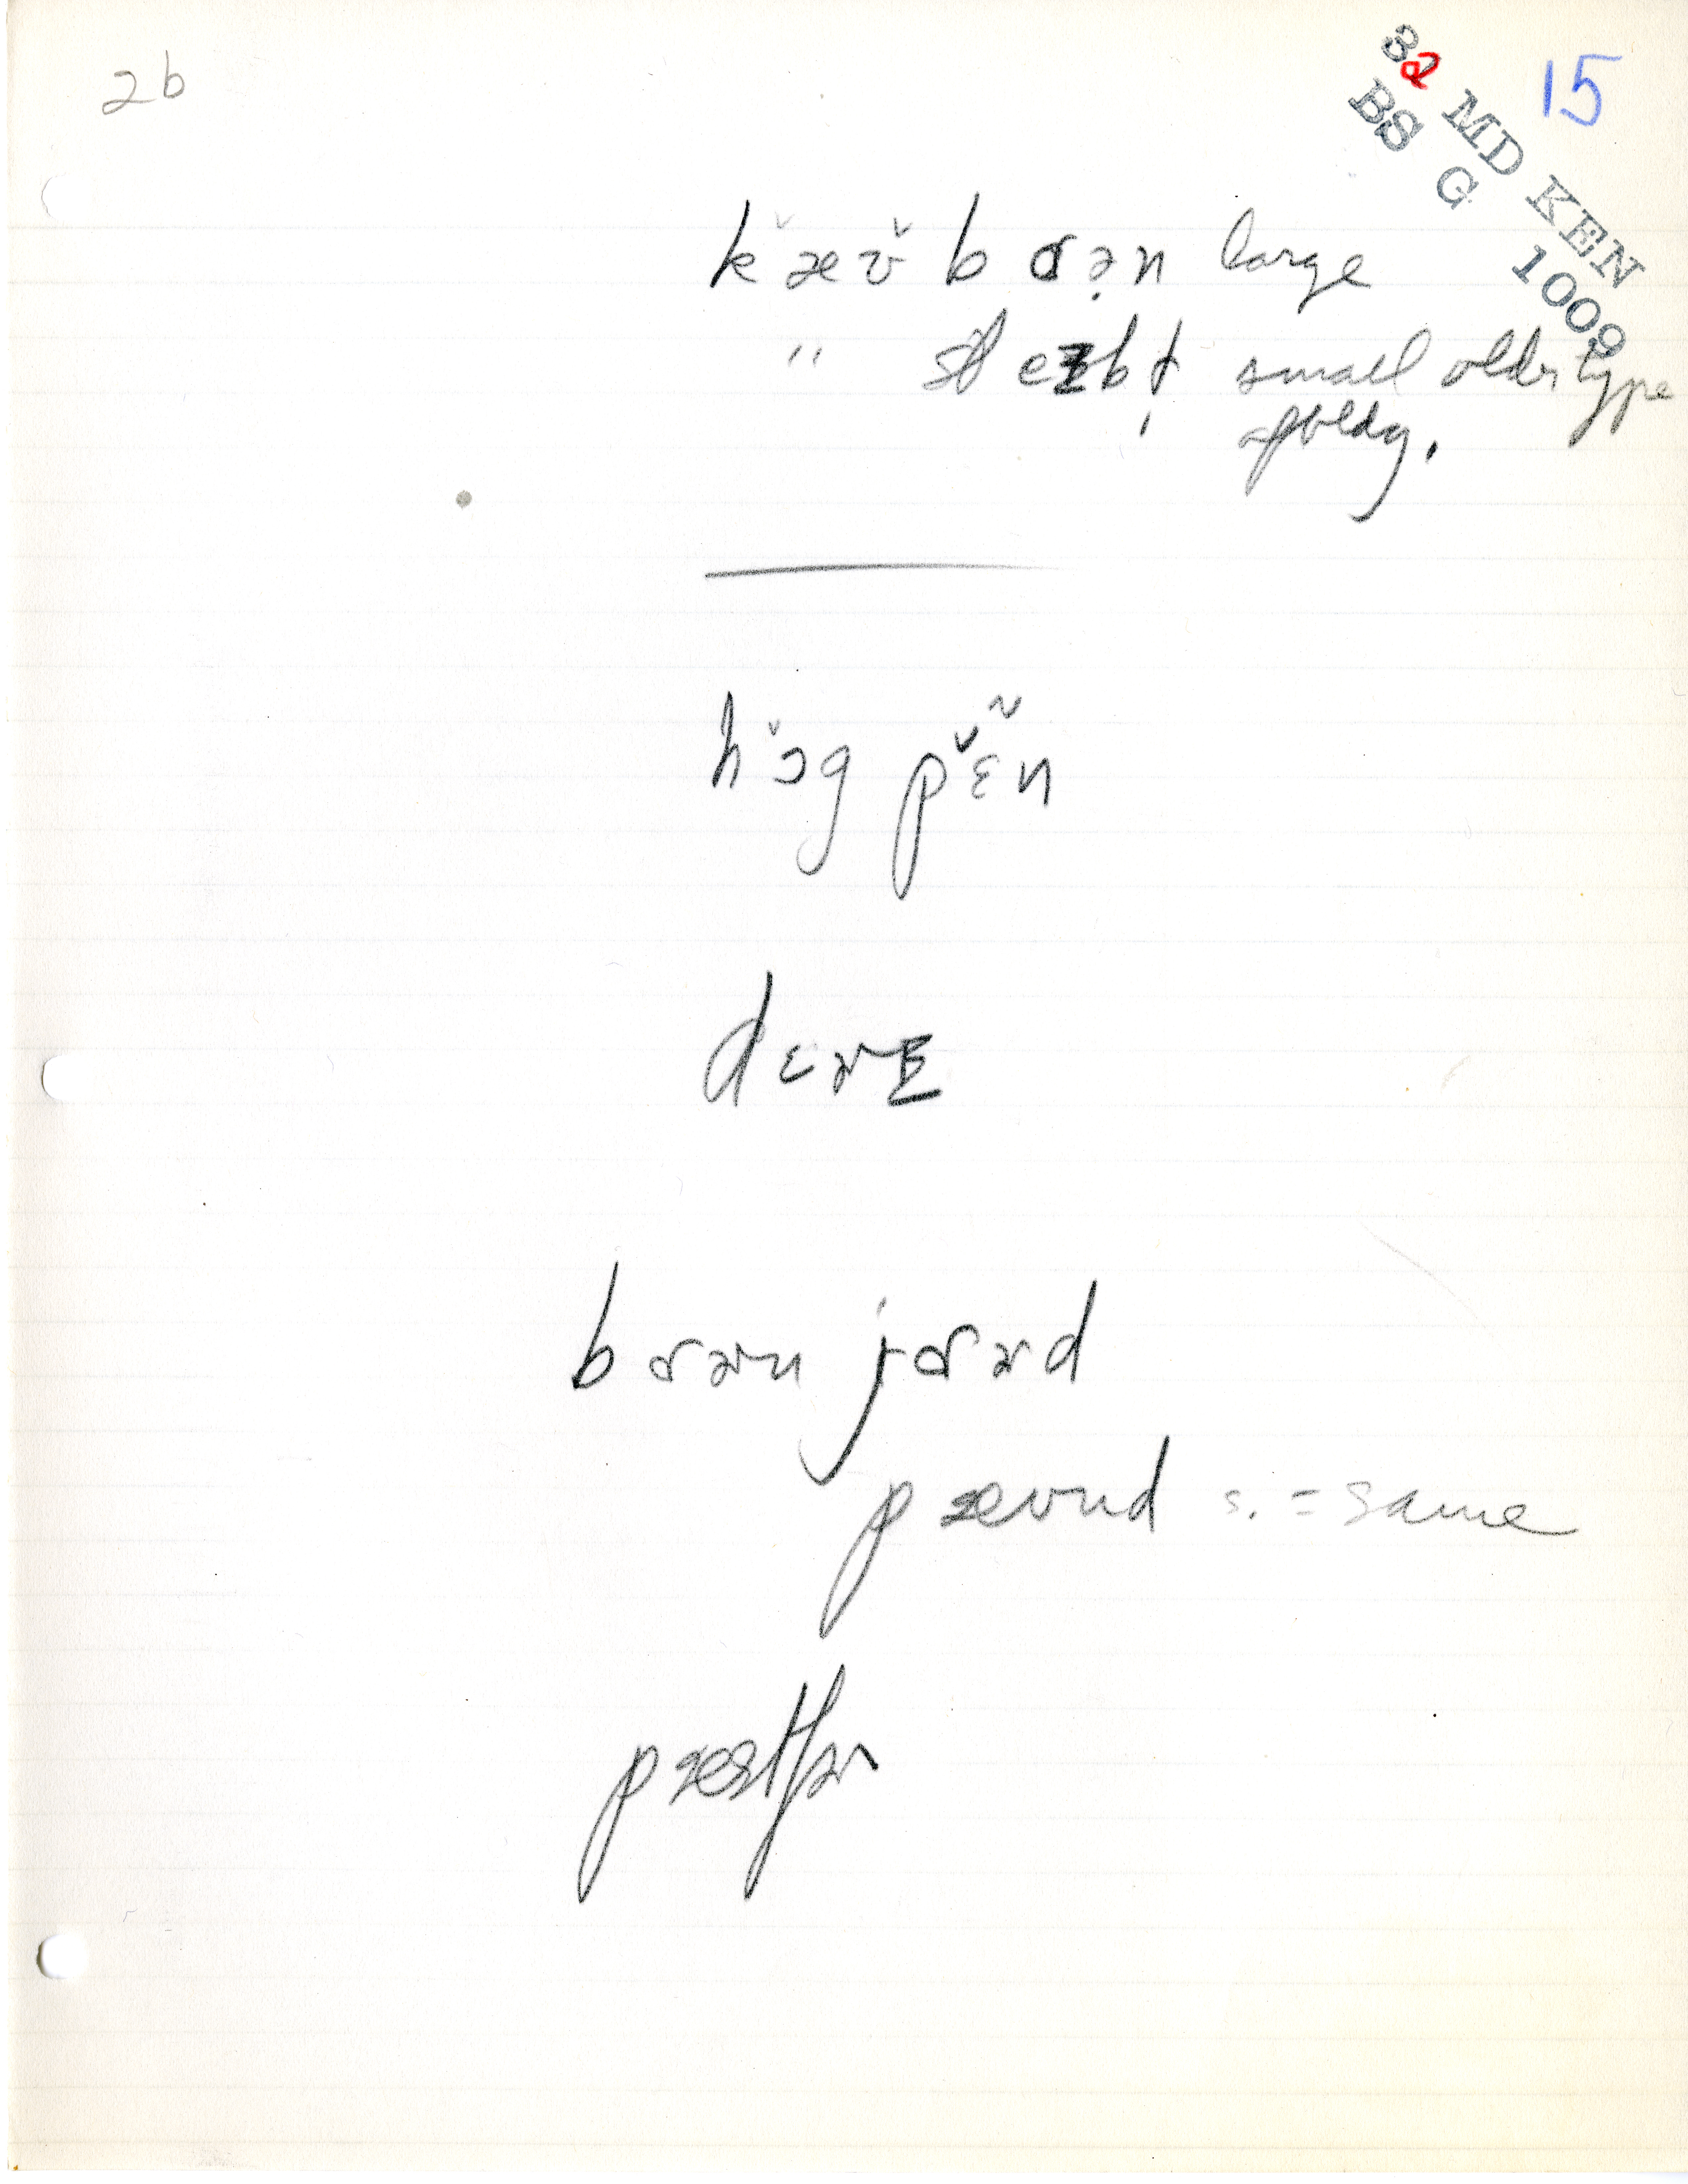 2b
32 MD KEN
BS G 1009
15
kæ̆ʊ̆ bɑɚn large
" small older type
of bldg.
hɔ̆g pɛ̃̆n
bɑɚn jɑɚd
pæʊnd s. = same
pæstʃɚ